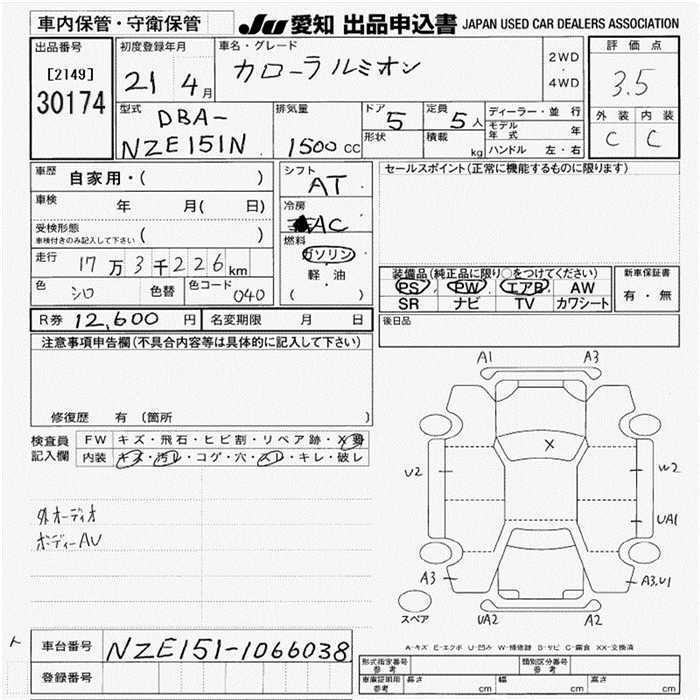 車内保管・守衛保管
JU 愛知 出品申込書 JAPAN USED CAR DEALERS ASSOCIATION
出品番号
[2149]
30174
初度登録年月
21 4月
車名・グレード
カローラルミオン
2WD
・
4WD
評価点
3.5
外装 内装
C C
型式
DBA-
NZE151N
排気量
1500 CC
ドア 5
形状
定員 5人
積載 kg
ディーラー・並行
モデル年式 年
ハンドル 左・右
車歴 自家用・( )
車検 年 月( 日)
受検形態
車検付きのみ記入して下さい ( )
走行 17万3千226km
色 シロ 色替 色コード 040
シフト
AT
冷房
AC
燃料
ガソリン
軽油
( )
セールスポイント(正常に機能するものに限ります)
装備品(純正品に限り○をつけてください)
PS PW エアB AW
SR ナビ TV カワシート
新車保証書
有・無
R券 12,600 円 名変期限 月 日
後日品
注意事項申告欄(不具合内容等は具体的に記入して下さい)
修復歴 有 (箇所 )
検査員
記入欄
FW キズ・飛石・ヒビ割・リペア跡・X要
内装 キズ・汚レ・コゲ・穴・スレ・キレ・破レ
外オーディオ
ボディーAU
A1 A3
X
U2 W2
UA1
A3 A3.U1
スペア UA2 A2
A-キズ E-エクボ U-凹み W-補修跡 B-サビ C-腐食 XX-交換済
ト
車台番号 NZE151-1066038
登録番号
形式指定番号
参考
類別区分番号
参考
車庫証明用
参考
長さ cm 幅 cm 高さ cm